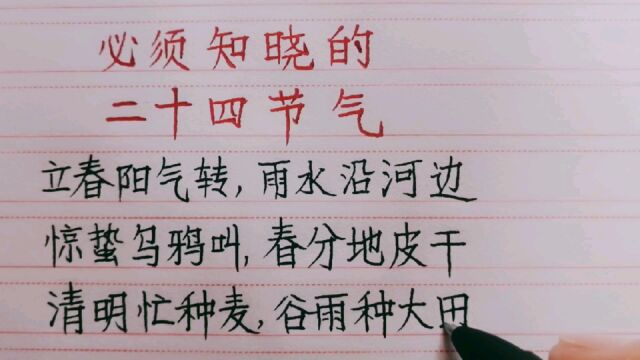 必须知晓的
二十四节气
立春阳气转,雨水沿河边
惊蛰乌鸦叫,春分地皮干
清明忙种麦,谷雨种大田